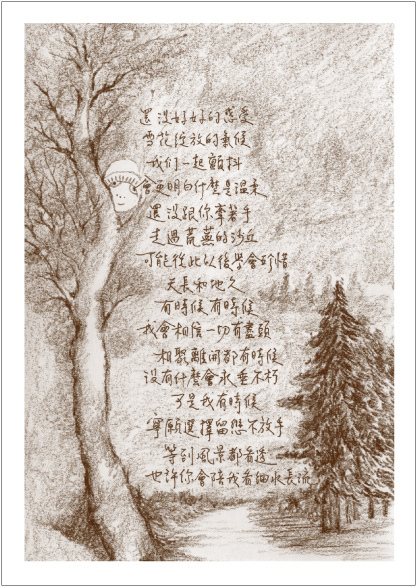 還沒好好的感受
雪花綻放的氣候
我们一起顫抖
會更明白什麼是溫柔
還沒跟你牽著手
走過荒蕪的沙丘
可能從此以後學會珍惜
天長和地久
有時候有時候
我會相信一切有盡頭
相聚離開都有時候
沒有什麼會永垂不朽
可是我有時候
寧願選擇留戀不放手
等到風景都看透
也許你會陪我看細水長流